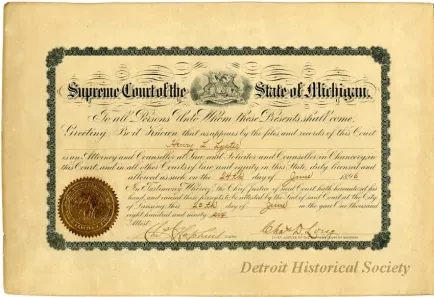 Supreme Court of the State of Michigan.
To all Persons Unto Whom these Presents shall come,
Greeting: Be it Known, that as appears by the files and records of this Court
Henry L. Lyster
is an Attorney and Counsellor at Law and Solicitor and Counsellor in Chancery, in
this Court and in all other Courts of law and equity in this State, duly licensed and
allowed as such on the 24th day of June 1896
In Testimony Whereof, The Chief Justice of said Court hath hereunto set his
hand, and caused these presents to be attested by the Seal of said Court at the City
of Lansing, this 25th day of June in the year One thousand
eight hundred and ninety six
Attest
Chas C Hopkins Chas D. Long
Detroit Historical Society